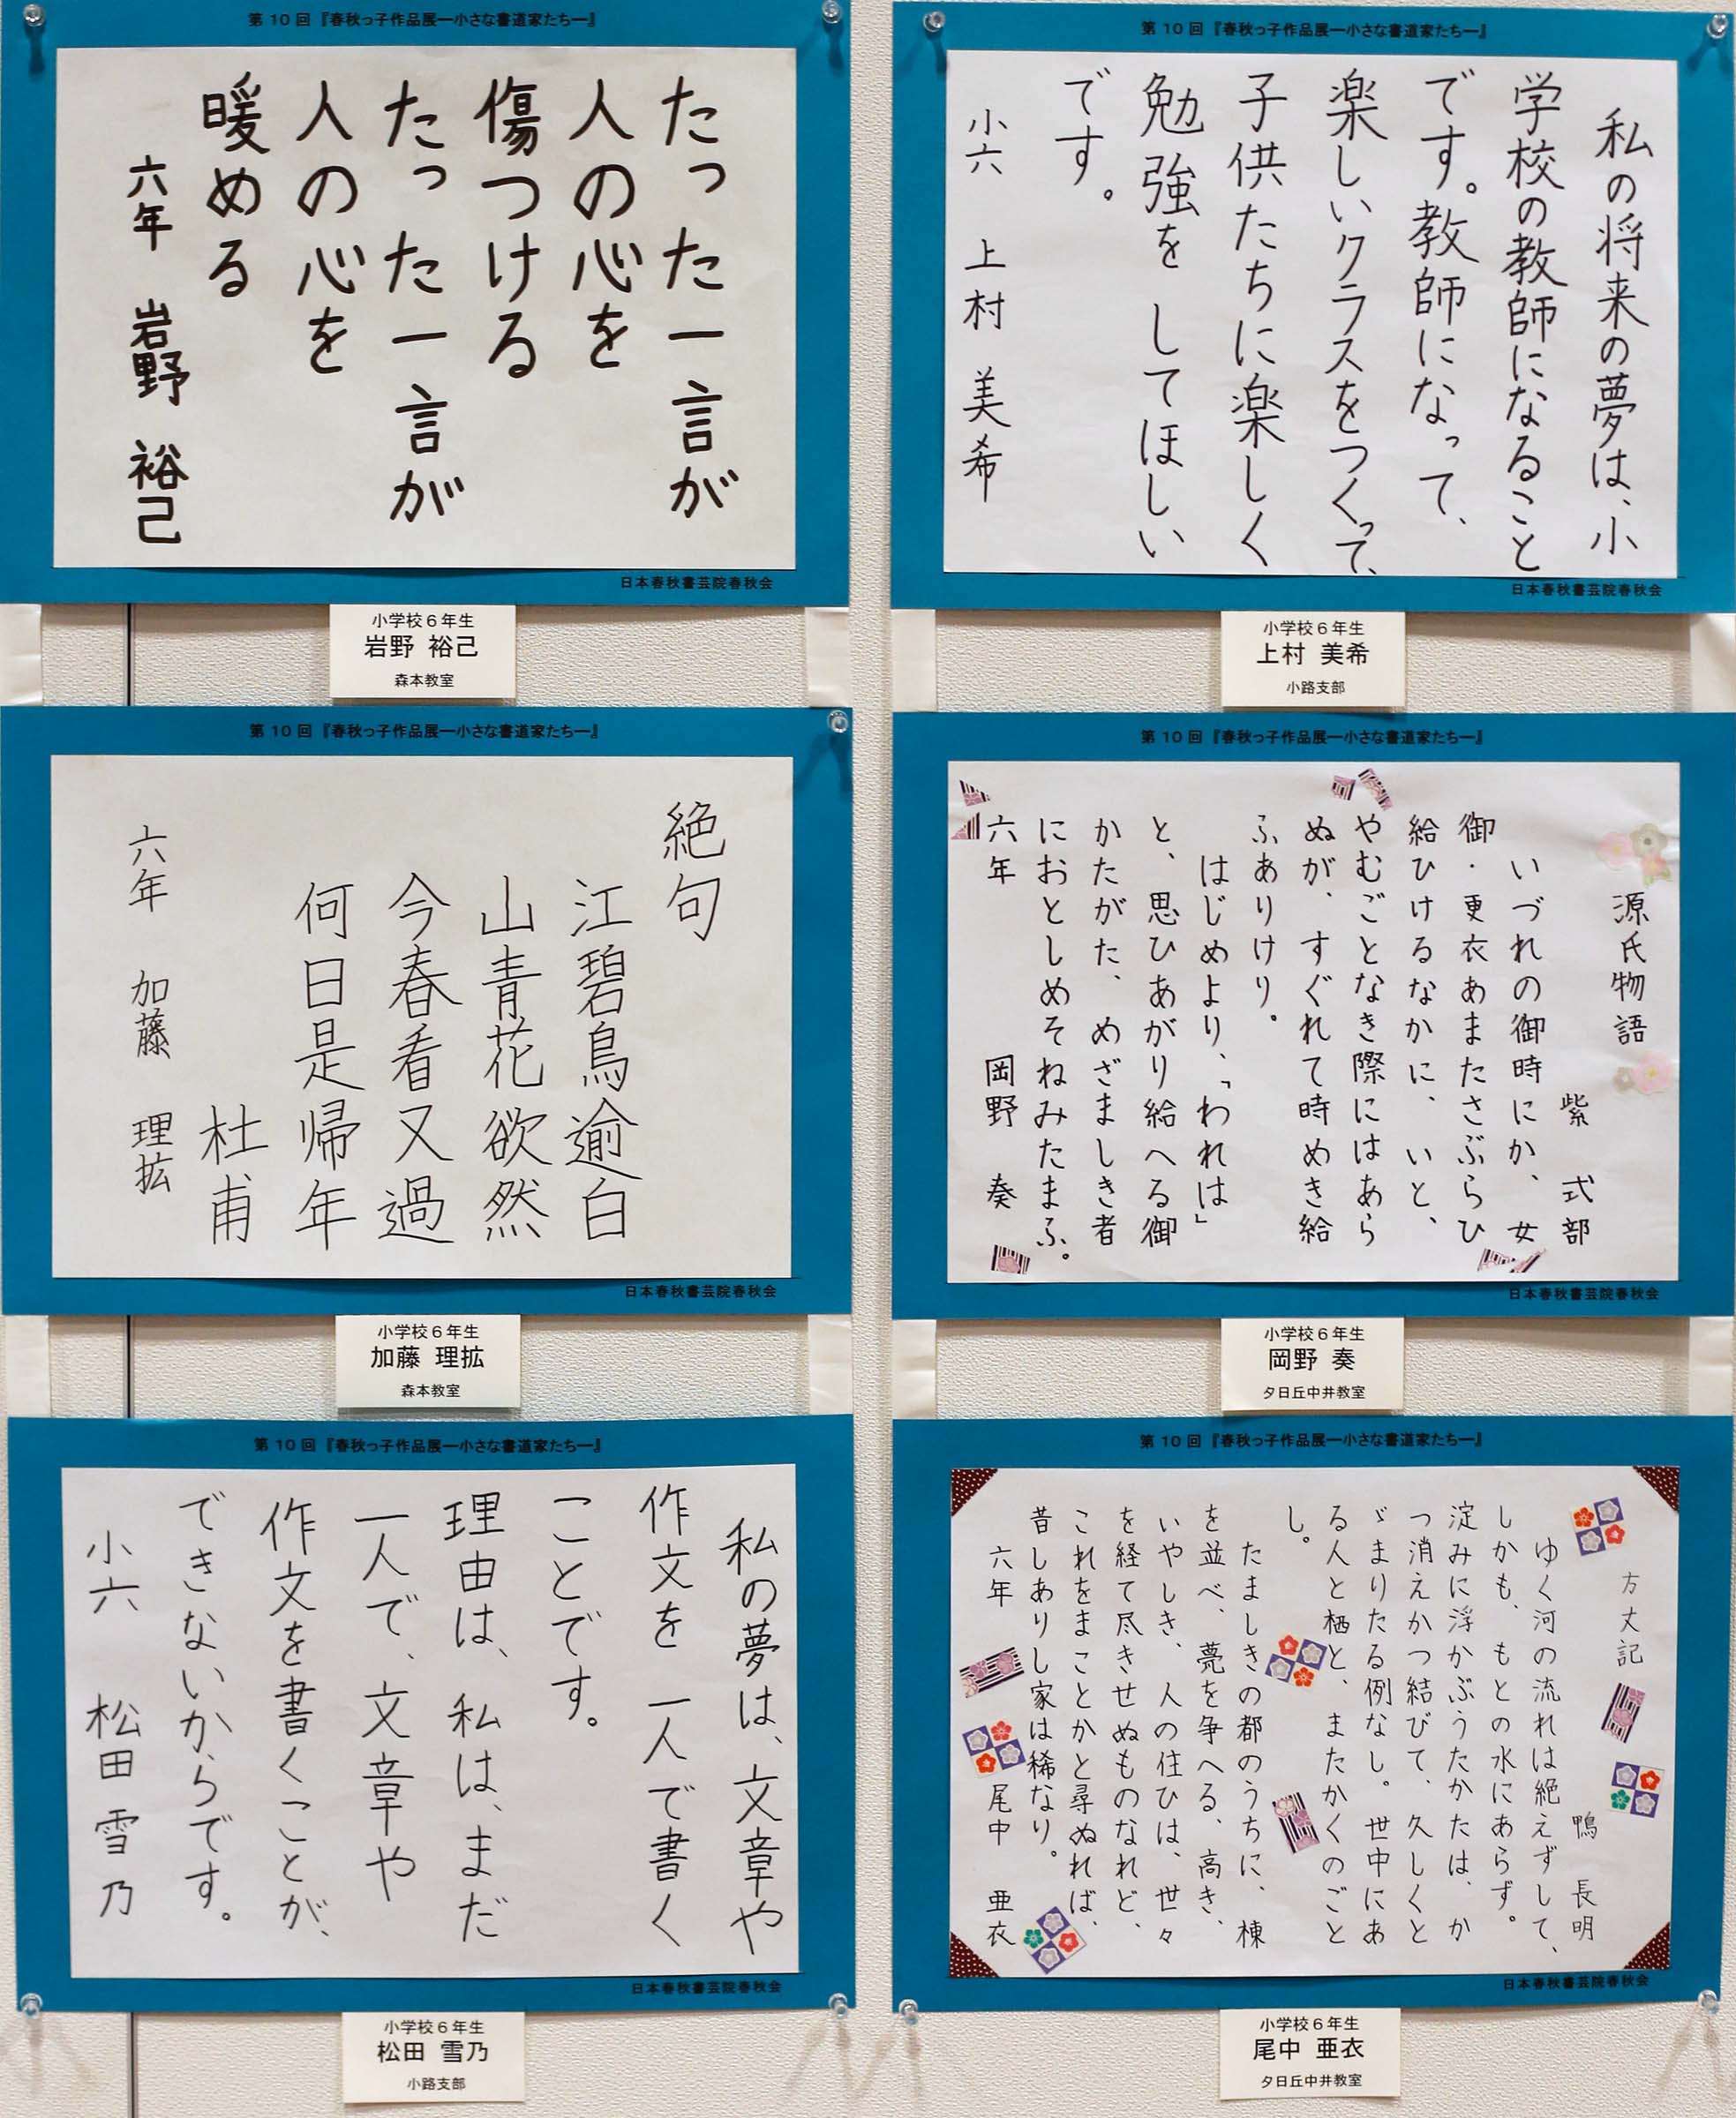 第10回『春秋っ子作品展―小さな書道家たち―』
たった一言が
人の心を
傷つける
たった一言が
人の心を
暖める
六年 岩野 裕己
日本春秋書芸院春秋会
小学校6年生
岩野 裕己
森本教室
第10回『春秋っ子作品展―小さな書道家たち―』
私の将来の夢は、小
学校の教師になること
です。教師になって、
楽しいクラスをつくって、
子供たちに楽しく
勉強を してほしい
です。
小六 上村 美希
日本春秋書芸院春秋会
小学校6年生
上村 美希
小路支部
第10回『春秋っ子作品展―小さな書道家たち―』
絶句
江碧鳥逾白
山青花欲然
今春看又過
何日是帰年
杜甫
六年 加藤 理拡
日本春秋書芸院春秋会
小学校6年生
加藤 理拡
森本教室
第10回『春秋っ子作品展―小さな書道家たち―』
源氏物語
紫 式部
いづれの御時にか、女
御・更衣あまたさぶらひ
給ひけるなかに、いと、
やむごとなき際にはあら
ぬが、すぐれて時めき給
ふありけり。
はじめより、「われは」
と、思ひあがり給へる御
かたがた、めざましき者
におとしめそねみたまふ。
六年 岡野 奏
日本春秋書芸院春秋会
小学校6年生
岡野 奏
夕日丘中井教室
第10回『春秋っ子作品展―小さな書道家たち―』
私の夢は、文章や
作文を一人で書く
ことです。
理由は、私は、まだ
一人で、文章や
作文を書くことが、
できないからです。
小六 松田 雪乃
日本春秋書芸院春秋会
小学校6年生
松田 雪乃
小路支部
第10回『春秋っ子作品展―小さな書道家たち―』
方丈記
鴨 長明
ゆく河の流れは絶えずして、
しかも、もとの水にあらず。
淀みに浮かぶうたかたは、か
つ消えかつ結びて、久しくと
ゞまりたる例なし。世中にあ
る人と栖と、またかくのごと
し。
たましきの都のうちに、棟
を並べ、甍を争へる、高き、
いやしき、人の住ひは、世々
を経て尽きせぬものなれど、
これをまことかと尋ぬれば、
昔しありし家は稀なり。
六年 尾中 亜衣
日本春秋書芸院春秋会
小学校6年生
尾中 亜衣
夕日丘中井教室